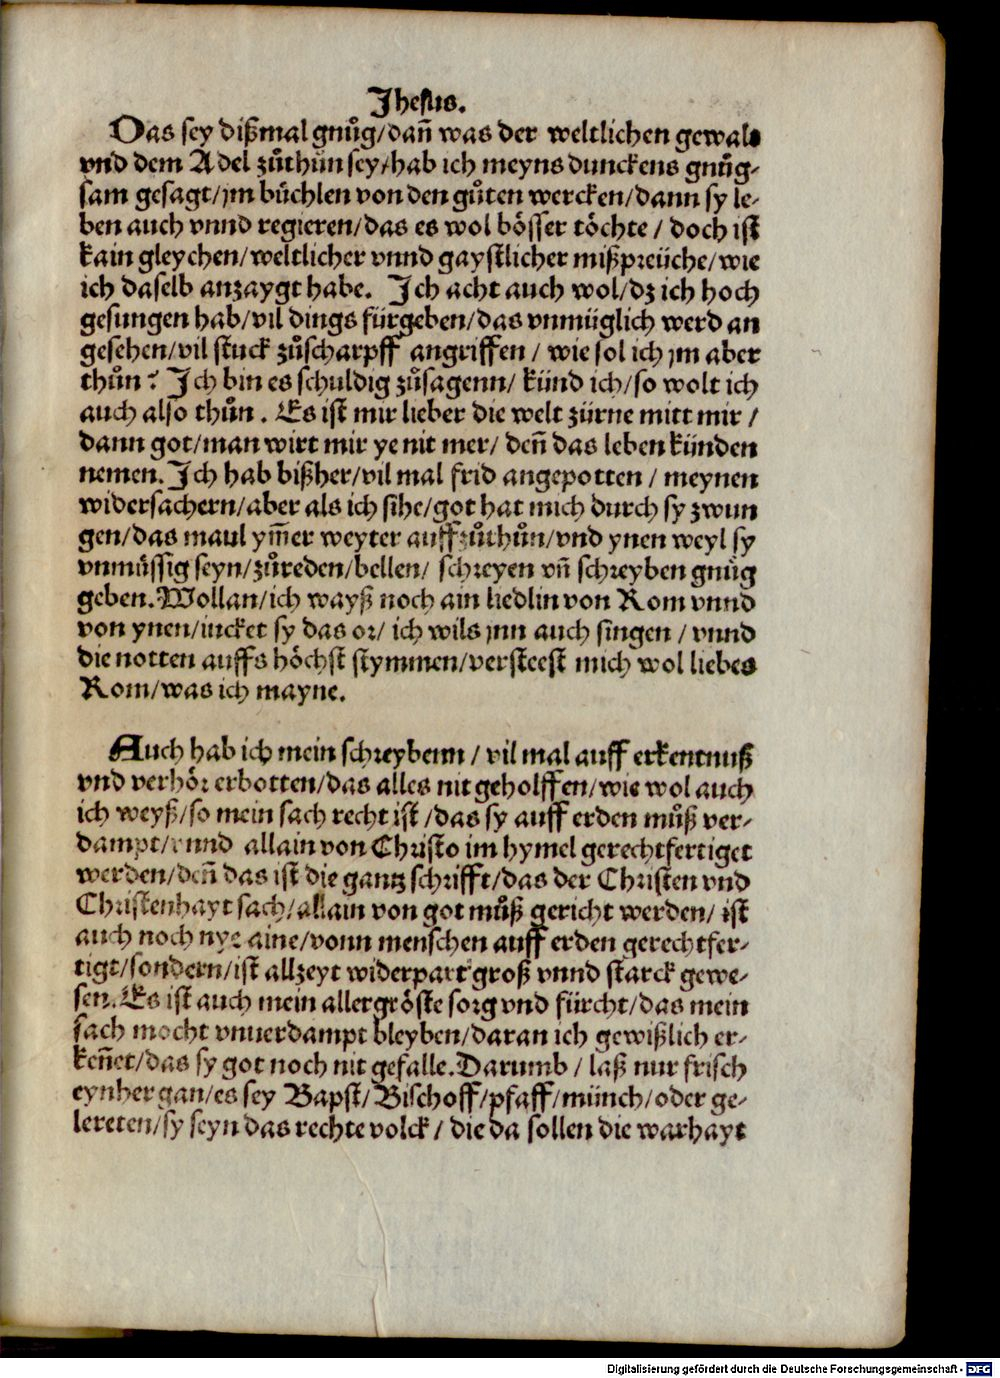 Jhesus.
Das sey dißmal gnůg/dañ was der weltlichen gewalt
vnd dem Adel zůthůn sey/hab ich meyns dunckens gnůg-
sam gesagt/jm büchlen von den gůten wercken/dann sy le-
ben auch vnnd regieren/das es wol bösser töchte / doch ist
kain gleychen/weltlicher vnnd gaystlicher mißpreüche/wie
ich daselb anzaygt habe. Ich acht auch wol/dz ich hoch
gesungen hab/vil dings fürgeben/das vnmüglich werd an
gesehen/vil stuck zůscharpff angriffen / wie sol ich jm aber
thůn? Ich bin es schuldig zůsagenn/ künd ich/so wolt ich
auch also thůn . Es ist mir lieber die welt zürne mitt mir /
dann got/man wirt mir ye nit mer/ deñ das leben künden
nemen. Ich hab bißher/vil mal frid angepotten / meynen
widersachern/aber als ich sihe/got hat mich durch sy zwun
gen/das maul ym̃er weyter auffzůthůn/vnd ynen weyl sy
vnmüssig seyn/zůreden/bellen/ schreyen vñ schreyben gnůg
geben. Wollan/ich wayß noch ain liedlin von Rom vnnd
von ynen/iucket sy das or/ ich wils jnn auch singen / vnnd
die notten auffs höchst stymmen/versteest mich wol liebes
Rom/was ich mayne.
Auch hab ich mein schreybenn / vil mal auff erkentnuß
vnd verhör erbotten/das alles nit geholffen/wie wol auch
ich weyß/so mein sach recht ist /das sy auff erden můß ver-
dampt/vnnd allain von Christo im hymel gerechtfertiget
werden/deñ das ist die gantz schrifft/das der Christen vnd
Christenhayt sach/allain von got můß gericht werden/ ist
auch noch nye aine/vonn menschen auff erden gerechtfer-
tigt/sondern/ist allzeyt widerpart groß vnnd starck gewe-
sen. Es ist auch mein allergröste sorg vnd fürcht/das mein
sach mocht vnuerdampt bleyben/daran ich gewißlich er-
keñet/das sy got noch nit gefalle. Darumb / laß nur frisch
eynher gan/es sey Bapst/Bischoff/pfaff/münch/oder ge-
lereten/sy seyn das rechte volck / die da sollen die warhayt
Digitalisierung gefördert durch die Deutsche Forschungsgemeinschaft - DFG